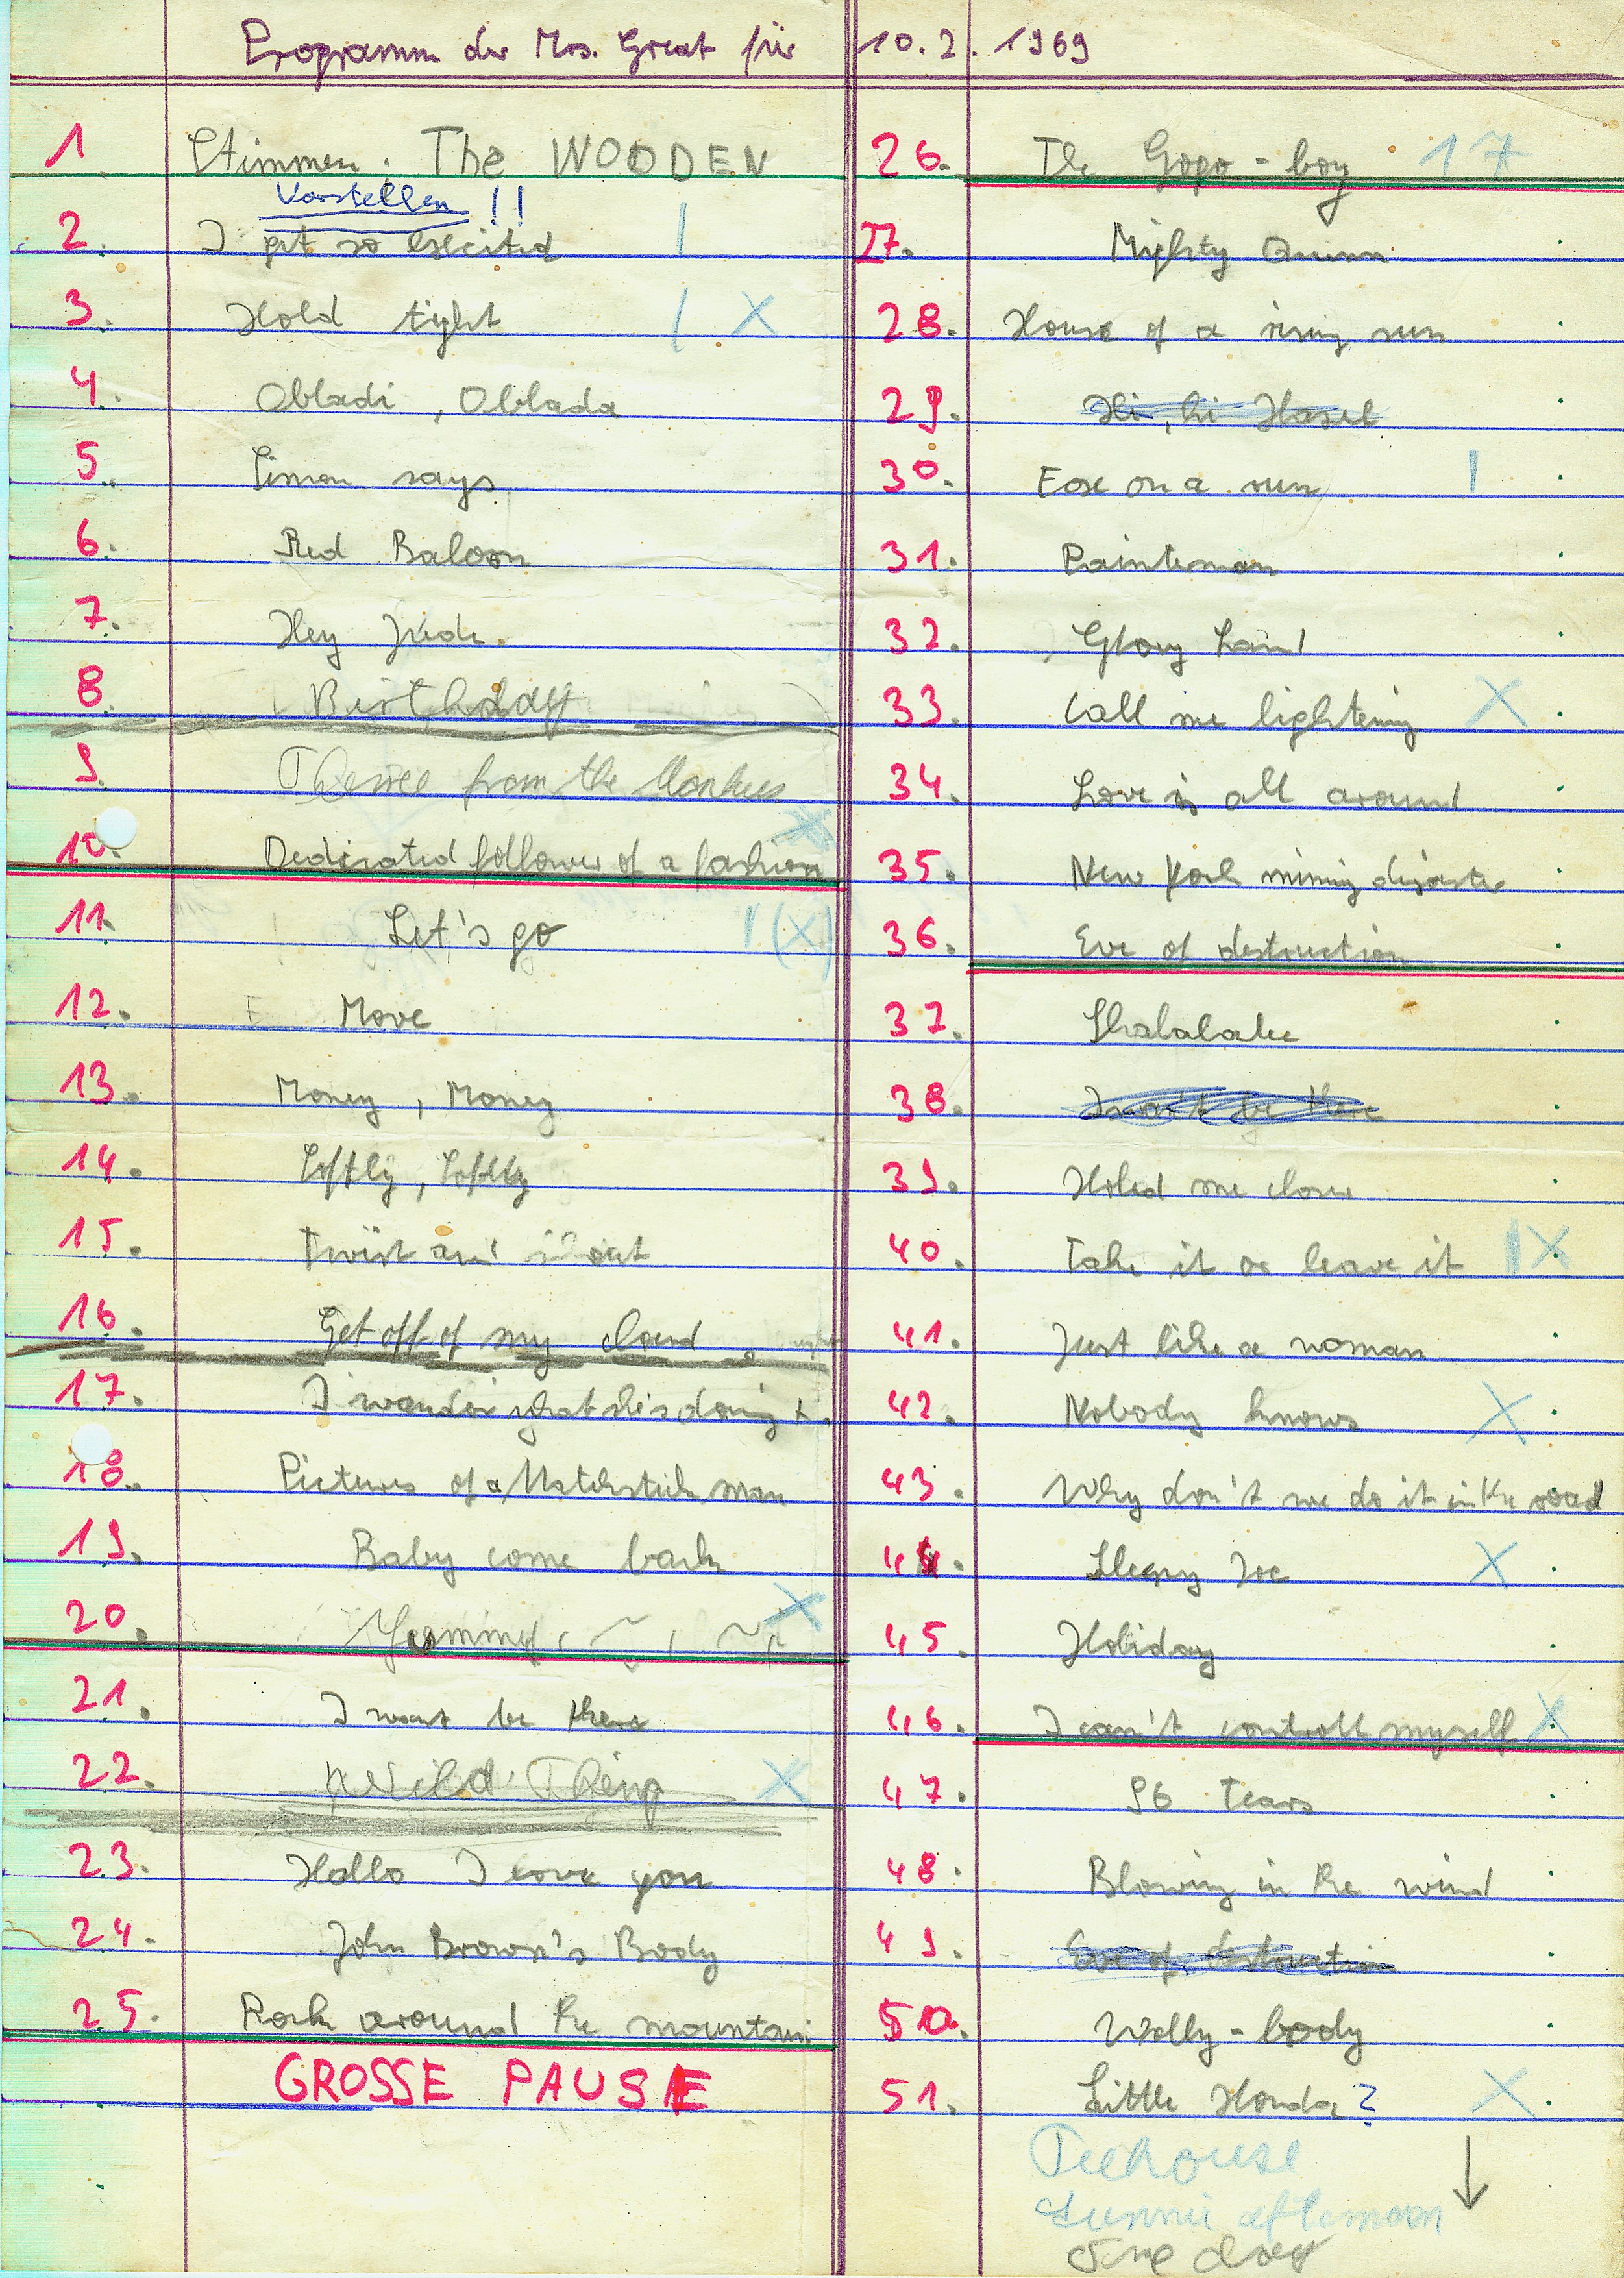 Programm der Mrs. Great für 10.2.1969
1 Stimmen. The WOODEN
Vorstellen !!
2. I get so excited |
3. Hold tight | X
4. Obladi, Oblada
5. Simon says
6. Red Baloon
7. Hey Jude.
8. Birthday
9. Theme from the Monkees
10. Dedicated follower of a fashion X
11. Let's go | (X)
12. Move
13. Money, Money
14. Softly, Softly
15. Twist and shout
16. Get off of my cloud
17. I wonder what she's doing t.
18. Pictures of a Matchstick man
19. Baby come back
20. Yummy, ~, ~, X
21. I want be there
22. Wild Thing X
23. Hallo I love you
24. John Brown's Body
25. Rock around the mountain
GROSSE PAUSE
26. The Gogo-boy 17
27. Mighty Quinn
28. House of a rising sun
29. Hi, hi Hazel
30. Fox on a run |
31. Painterman
32. Glory Land
33. Call me lightening X
34. Love is all around
35. New York mining disaster
36. Eve of destruction
37. Shalalalee
38. I won't be there
39. Holed me closer
40. Take it or leave it | X
41. Just like a woman
42. Nobody knows X
43. Why don't we do it in the road
44. Sleepy Joe X
45. Holiday
46. I can't controll myself X
47. 96 Tears
48. Blowing in the wind
49. Eve of destruction
50. Wolly-body
51. Little Honda? X
Teehouse
Sunnie afternoon
One day